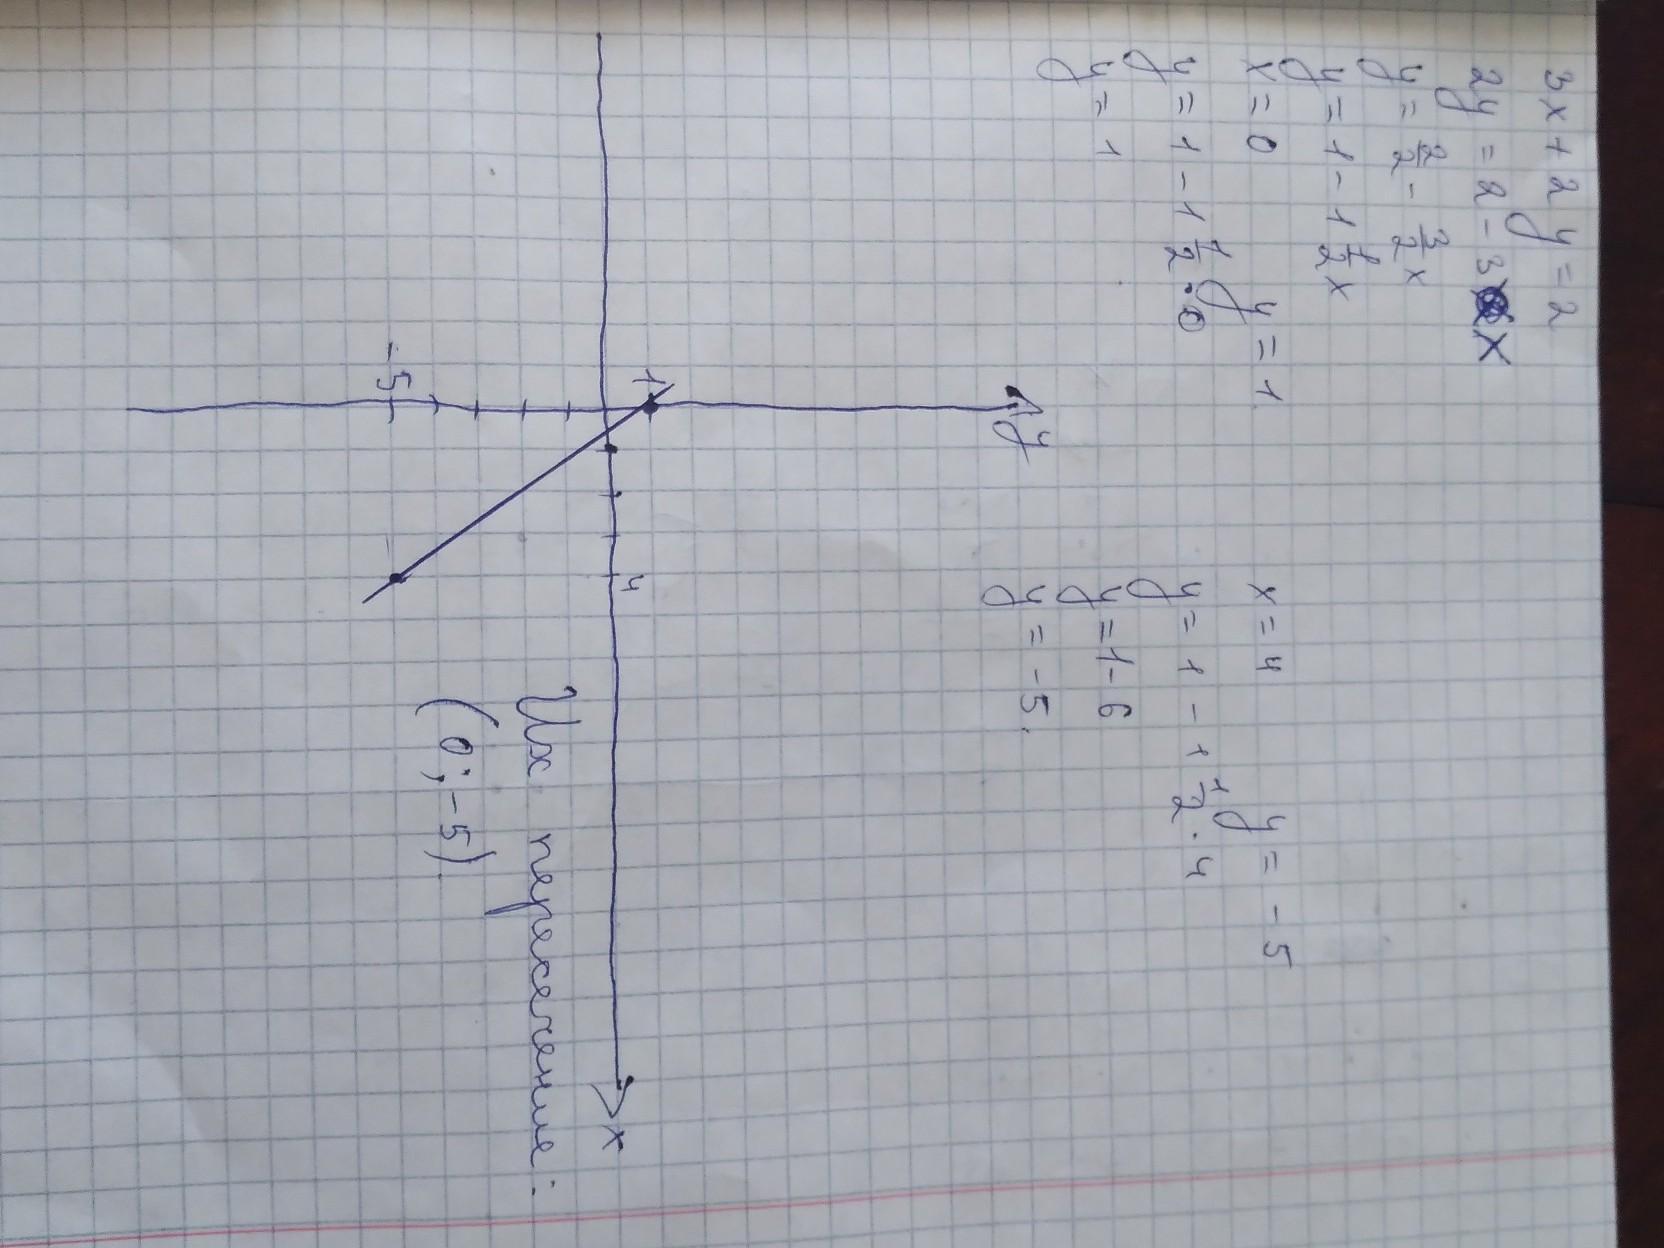 3x + 2y = 2
2y = 2 - 3x
y = 2/2 - 3/2 x
y = 1 - 1 1/2 x
x = 0 y = 1
y = 1 - 1 1/2 · 0
y = 1
x = 4 y = -5
y = 1 - 1 1/2 · 4
y = 1 - 6
y = -5.
y
1
4
x
-5
Их пересечение:
(0; -5)